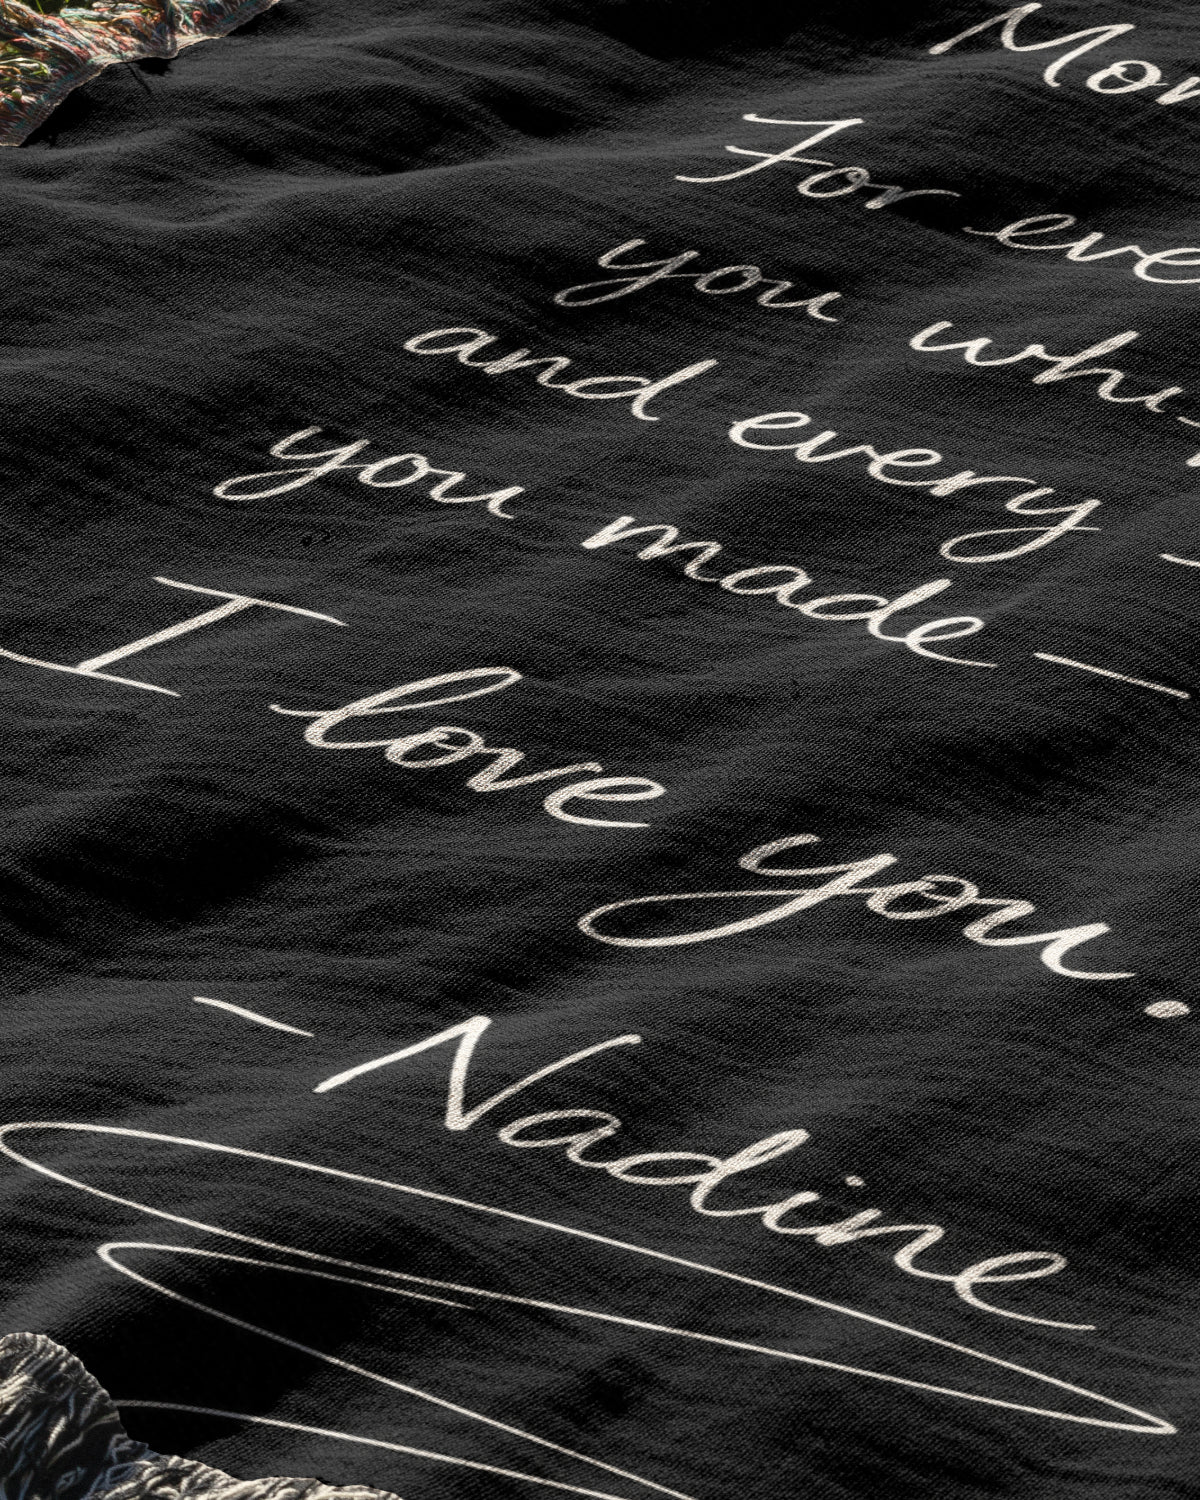 For
you
and every
you made —
I love you.
— Nadine